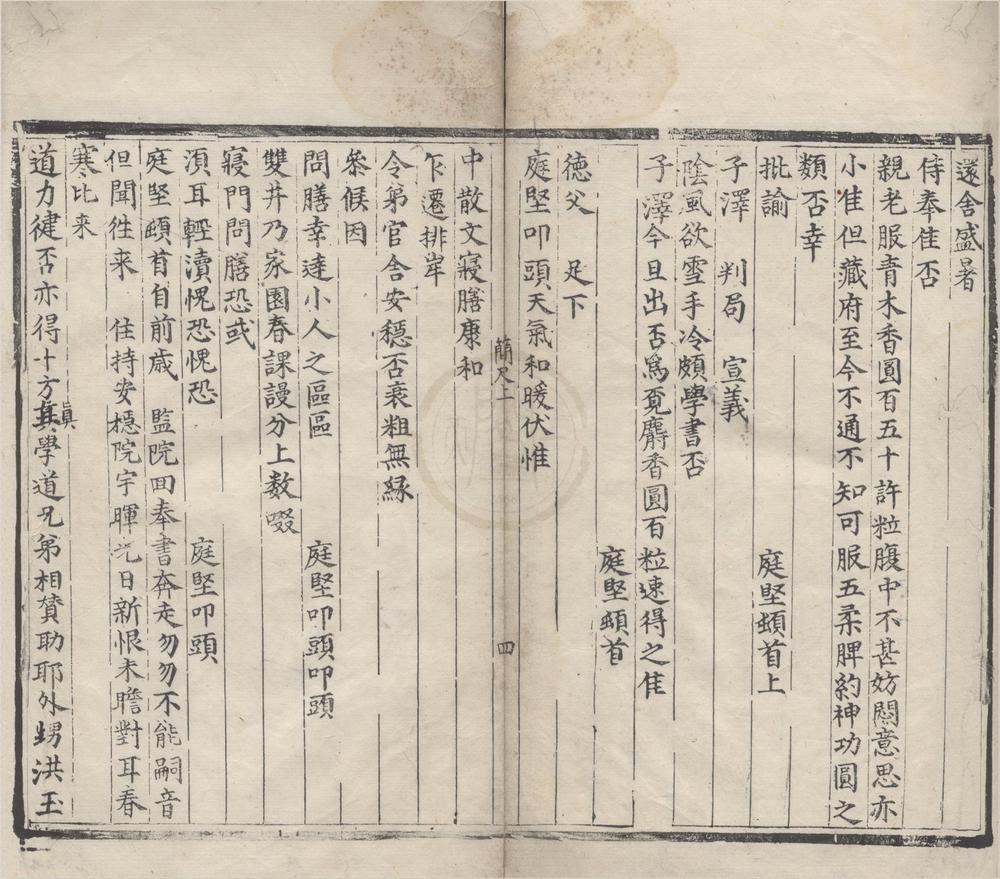 還舍盛暑
侍奉佳否
親老服青木香圓百五十許粒腹中不甚妨悶意思亦
小佳但藏府至今不通不知可服五柔脾約神功圓之
類否幸
批諭　庭堅頓首上
子澤　判局　宣義
陰風欲雪手冷頗學書否
子澤今旦出否為覓麝香圓百粒速得之佳
庭堅頓首
德父　足下
庭堅叩頭天氣和暖伏惟
簡尺上　四
中散文寢膳康和
乍遷排岸
令弟官舍安穩否衰粗無緣
叅候因
問膳幸達小人之區區　庭堅叩頭叩頭
雙井乃家園春課謾分上数啜
寢門問膳恐或
湏耳輕瀆愧恐愧恐　庭堅叩頭
庭堅頓首自前歲　監院囬奉書奔走勿勿不能嗣音
但聞徃来　住持安穩院宇暉光日新恨未瞻對耳春
寒比来
道力徤否亦得十方真學道兄弟相賛助耶外甥洪玉
真